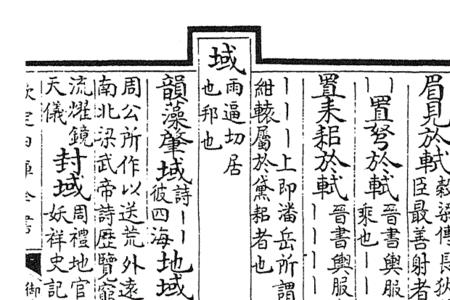 眉見於軾穀梁傳長狄
臣最善射者
置弩於軾晉書輿服
乘也
置耒耜於軾晉書輿服
||||
||||上即潘岳所謂
紺轅屬於黛耜者也
域雨逼切居
也邦也
韻藻肇域詩||
彼四海地域
周公所作以送荒外遠
南北梁武帝詩歷覽
流耀鏡封域周禮地官
天儀妖祥史記
欽定四庫全書 御